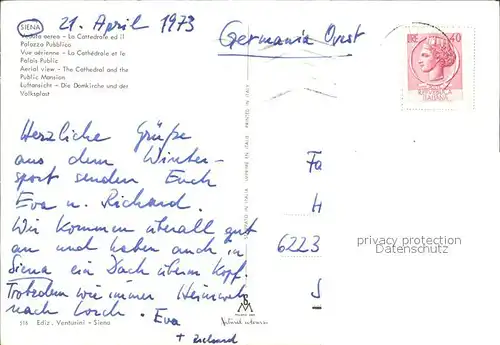 SIENA 21. April 1973
Veduta aerea - La Cattedrale ed il
Palazzo Pubblico
Vue aérienne - La Cathédrale et le
Palais Public
Aerial view - The Cathedral and the
Public Mansion
Luftansicht - Die Domkirche und der
Volksplast
Germania Ovest
LIRE 40
REPVBBLICA
ITALIANA
Herzliche Grüße
aus dem Winter-
sport senden Euch
Eva u. Richard.
Wir kommen überall gut
an und haben auch in
Siena ein Dach überm Kopf.
Trotzdem wie immer Heimweh
nach Lorch. Eva
+ Richard
Fa
H
6223
S
privacy protection
Datenschutz
PRINTED IN ITALY
IMPRIMÉ EN ITALIE
Natural colours
516 Ediz. Venturini - Siena